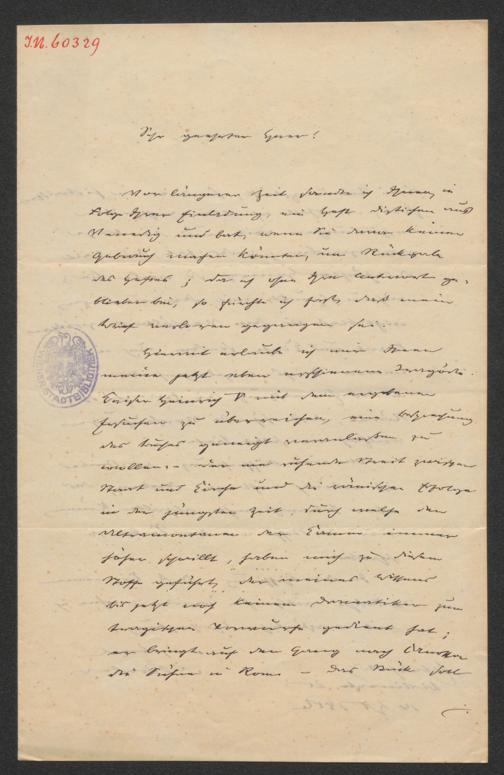 J.N. 60329
Sehr geehrter Herr!
Vor längerer Zeit sandte ich Ihnen, in
Folge Ihrer Einladung, ein Heft Distichen aus
Venedig und bat, wenn Sie davon keinen
Gebrauch machen könnten, um Rückgabe
des Heftes; da ich ohne Ihre Antwort ge-
blieben bin, so fürchte ich fast, daß mein
Brief verloren gegangen sei.
Hiermit erlaube ich mir Ihnen
meine jetzt eben erschienene Tragödie:
Kaiser Heinrich V mit dem ergebenen
Ersuchen zu überreichen, eine Besprechung
des Buches geneigt veranlaßen zu
wollen. – Der nie ruhende Streit zwischen
Staat und Kirche und die römischen Erfolge
in der jüngsten Zeit, durch welche den
Ultramontanen der Kamm immer
höher schwillt, haben mich zu diesem
Stoff geführt, der meines Wissens
bis jetzt noch keinem Dramatiker zum
tragischen Vorwurfe gedient hat;
er bringt auf den Gang nach Canossa
die Sühne in Rom – Das Stück soll
STADTBIBLIOTHEK